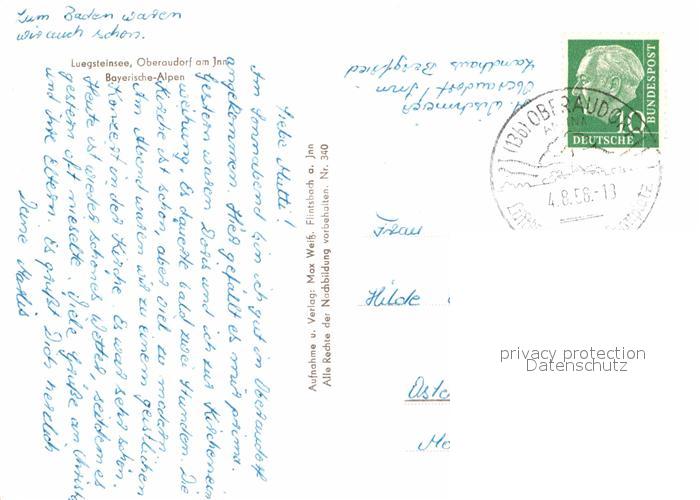 Zum Baden waren
wir auch schon.
Luegsteinsee, Oberaudorf am Jnn
Bayerische-Alpen
Liebe Mutti!
Am Sonnabend bin ich gut in Oberaudorf
angekommen. Hier gefällt es mir prima.
Gestern waren Doris und ich zur Kirchenein-
weihung. Es dauerte bald zwei Stunden. Die
Kirche ist schön, aber viel zu modern.
Am Abend waren wir zu einem geistlichen
Konzert in der Kirche. Es war sehr schön.
Heute ist wieder schönes Wetter, seitdem es
gestern oft nieselte. Viele Grüße an Christ
und ihre Eltern. Es grüßt Dich herzlich
Deine
Aufnahme u. Verlag: Max Weiß, Flintsbach a. Jnn
Alle Rechte der Nachbildung vorbehalten. Nr. 340
Oberaudorf/Inn
Landhaus Bergfried
10
DEUTSCHE
BUNDESPOST
(13b) OBERAUDORF
AM INN
4.8.58.-18
Frau
Hilde
Oste
privacy protection
Datenschutz